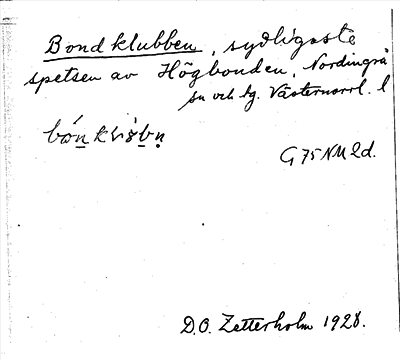 Bondklubben, sydligaste
spetsen av Högbonden, Nordingrå
sn och tg. Västernorrl. l
G 75 NM 2d.
D.O. Zetterholm 1928.